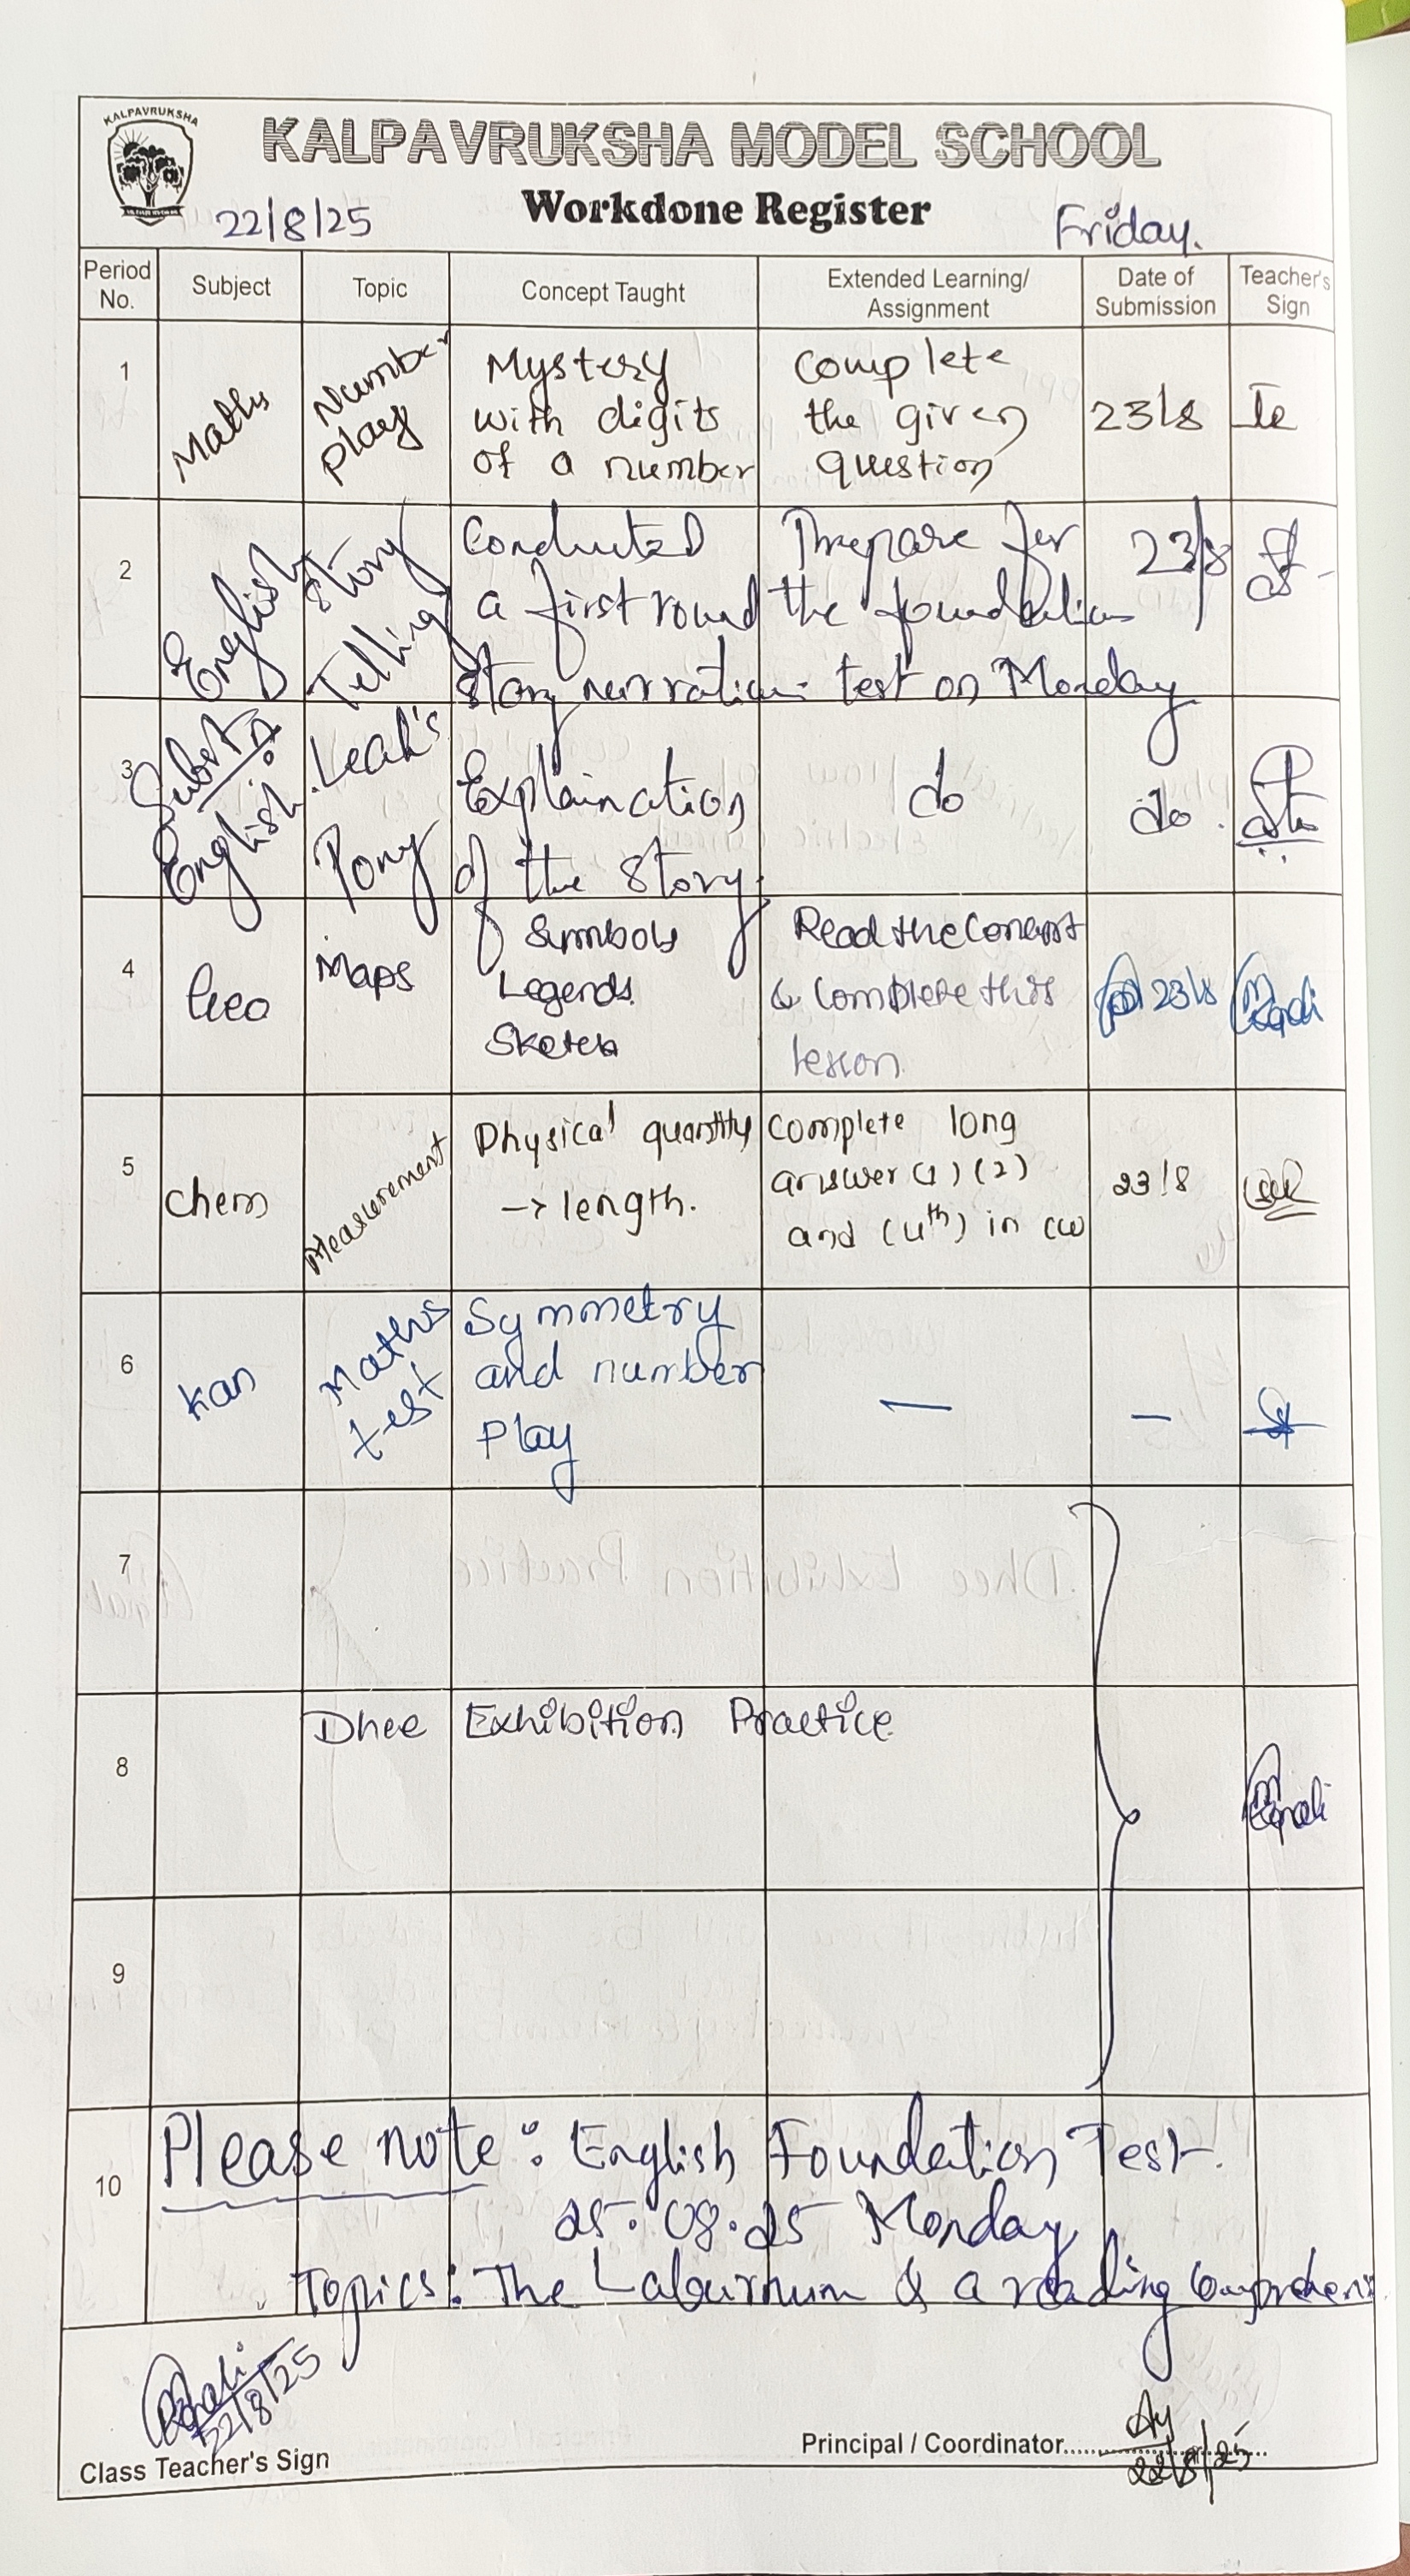 KALPAVRUKSHA
KALPAVRUKSHA MODEL SCHOOL
Workdone Register
22/8/25
Friday.
Period No.
Subject
Topic
Concept Taught
Extended Learning/ Assignment
Date of Submission
Teacher's Sign
1
Maths
Number
play
Mystery
with digits
of a number
Complete
the given
question
23/8
2
English
Story
Telling
Conducted
a first round
story narration.
Prepare for
the foundation
test on Monday
23/8
3
Substn
English.
Leah's
Pony
Explaination
of the story.
do
do.
4
Geo
Maps
Symbols
Legends.
Sketch
Read the Concept
& Complete this
lesson.
23/8
5
Chem
Measurement
Physical quantity
→ length.
Complete long
answer (1) (2)
and (4th) in CW
23/8
6
Kan
Maths
test
Symmetry
and number
Play
—
—
7
8
Dhee Exhibition Practice.
9
10
Please note: English Foundation Test.
25.08.25 Monday
Topics: The Laburnum & a reading
22/8/25
Class Teacher's Sign
Principal / Coordinator
22/8/25